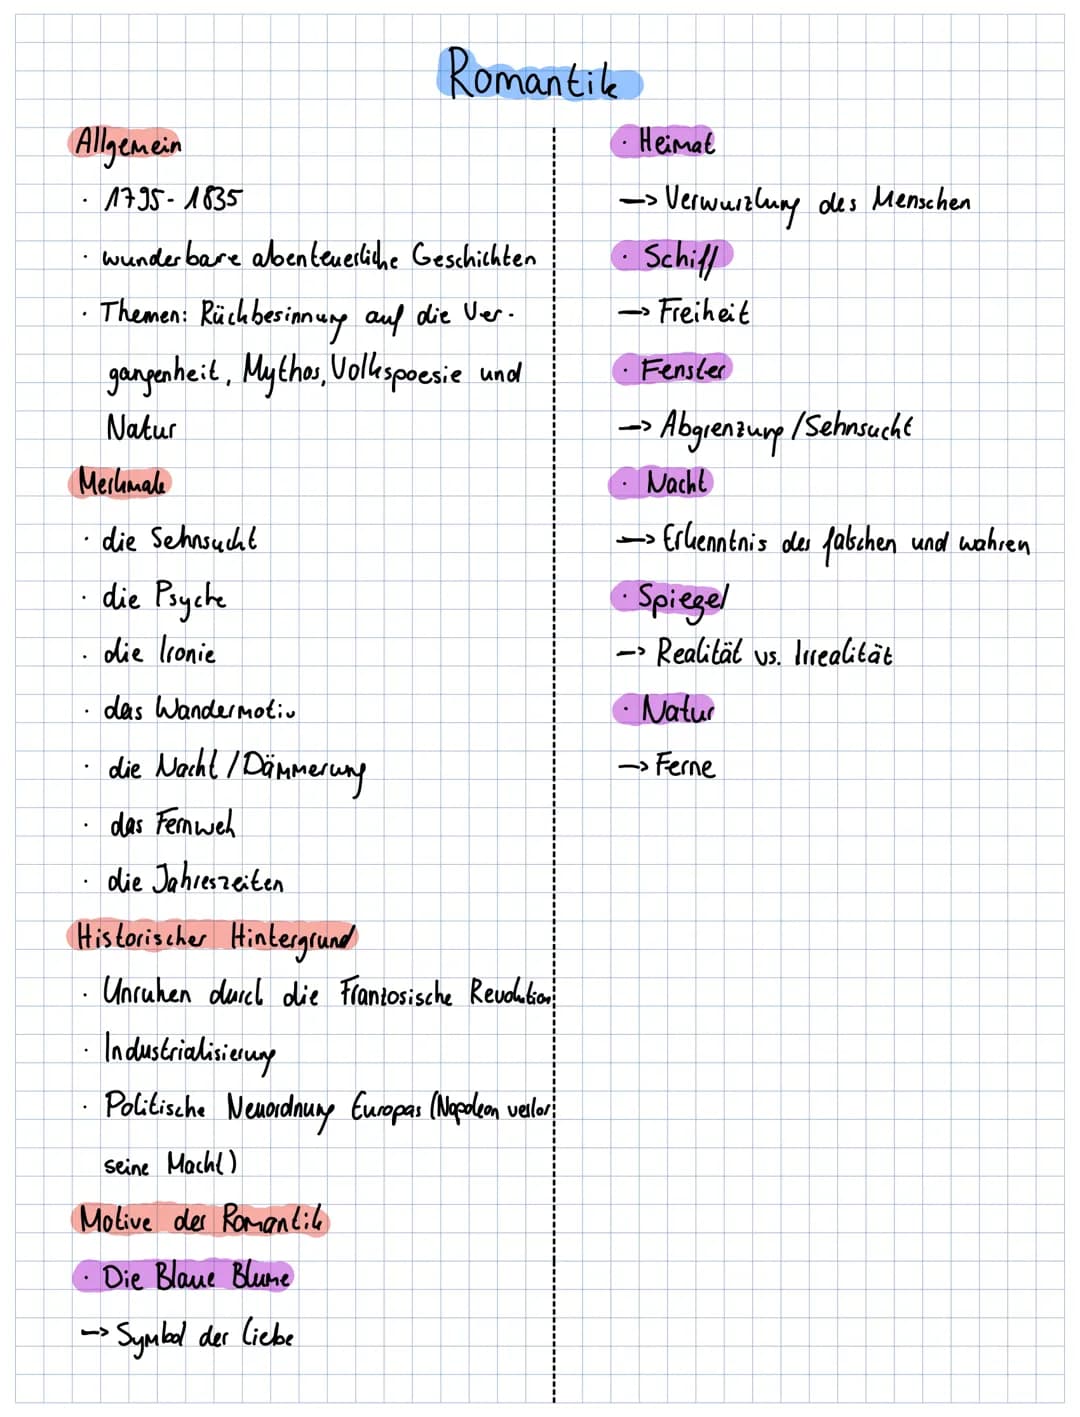 Romantik
Allgemein
· 1795 - 1835
· wunderbare abenteuerliche Geschichten
· Themen: Rückbesinnung auf die Ver-
gangenheit, Mythos, Volkspoesie und
Natur
Merkmale
· die Sehnsucht
· die Psyche
· die Ironie
· das Wandermotiv
· die Nacht / Dämmerung
· das Fernweh
· die Jahreszeiten
Historischer Hintergrund
· Unruhen durch die Französische Revolution
· Industrialisierung
· Politische Neuordnung Europas (Napoleon verlor
seine Macht)
Motive der Romantik
· Die Blaue Blume
–> Symbol der Liebe
· Heimat
–> Verwurzlung des Menschen
· Schiff
–> Freiheit
· Fenster
–> Abgrenzung / Sehnsucht
· Nacht
–> Erkenntnis des falschen und wahren
· Spiegel
–> Realität vs. Irrealität
· Natur
–> Ferne